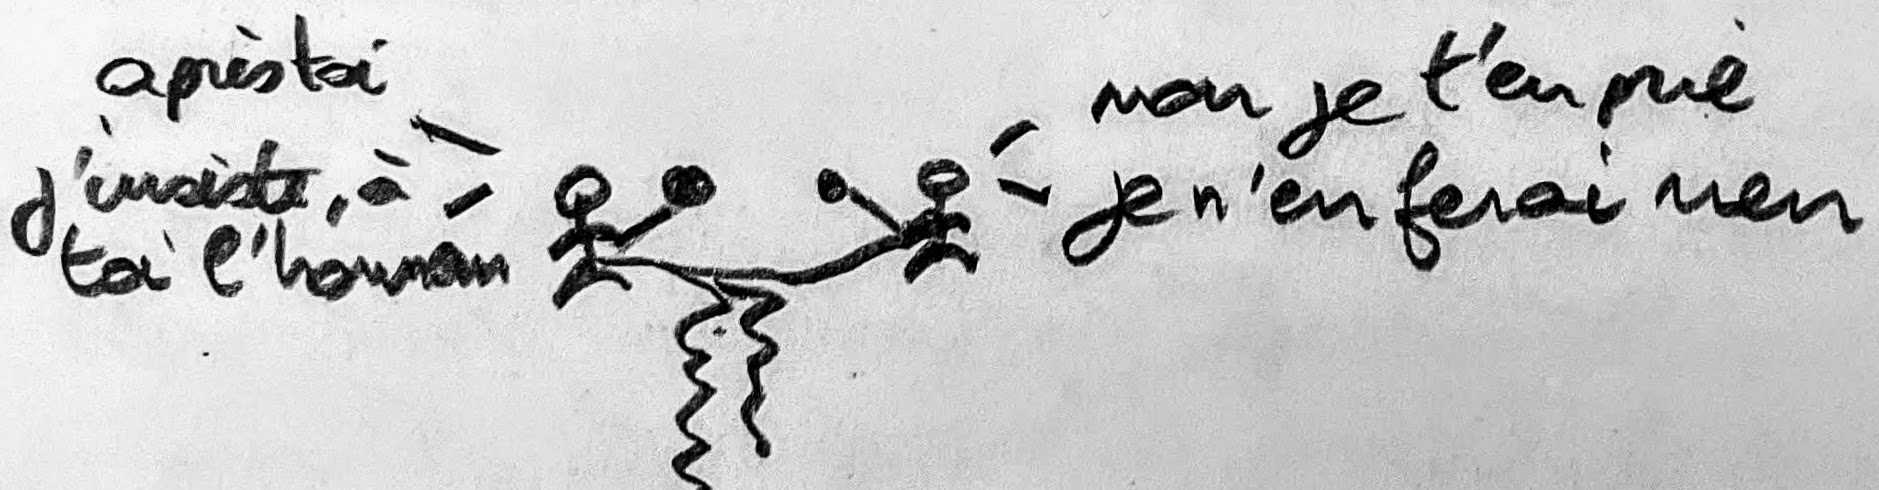 après toi
j'insiste, à
toi l'honneur
non je t'en prie
je n'en ferai rien